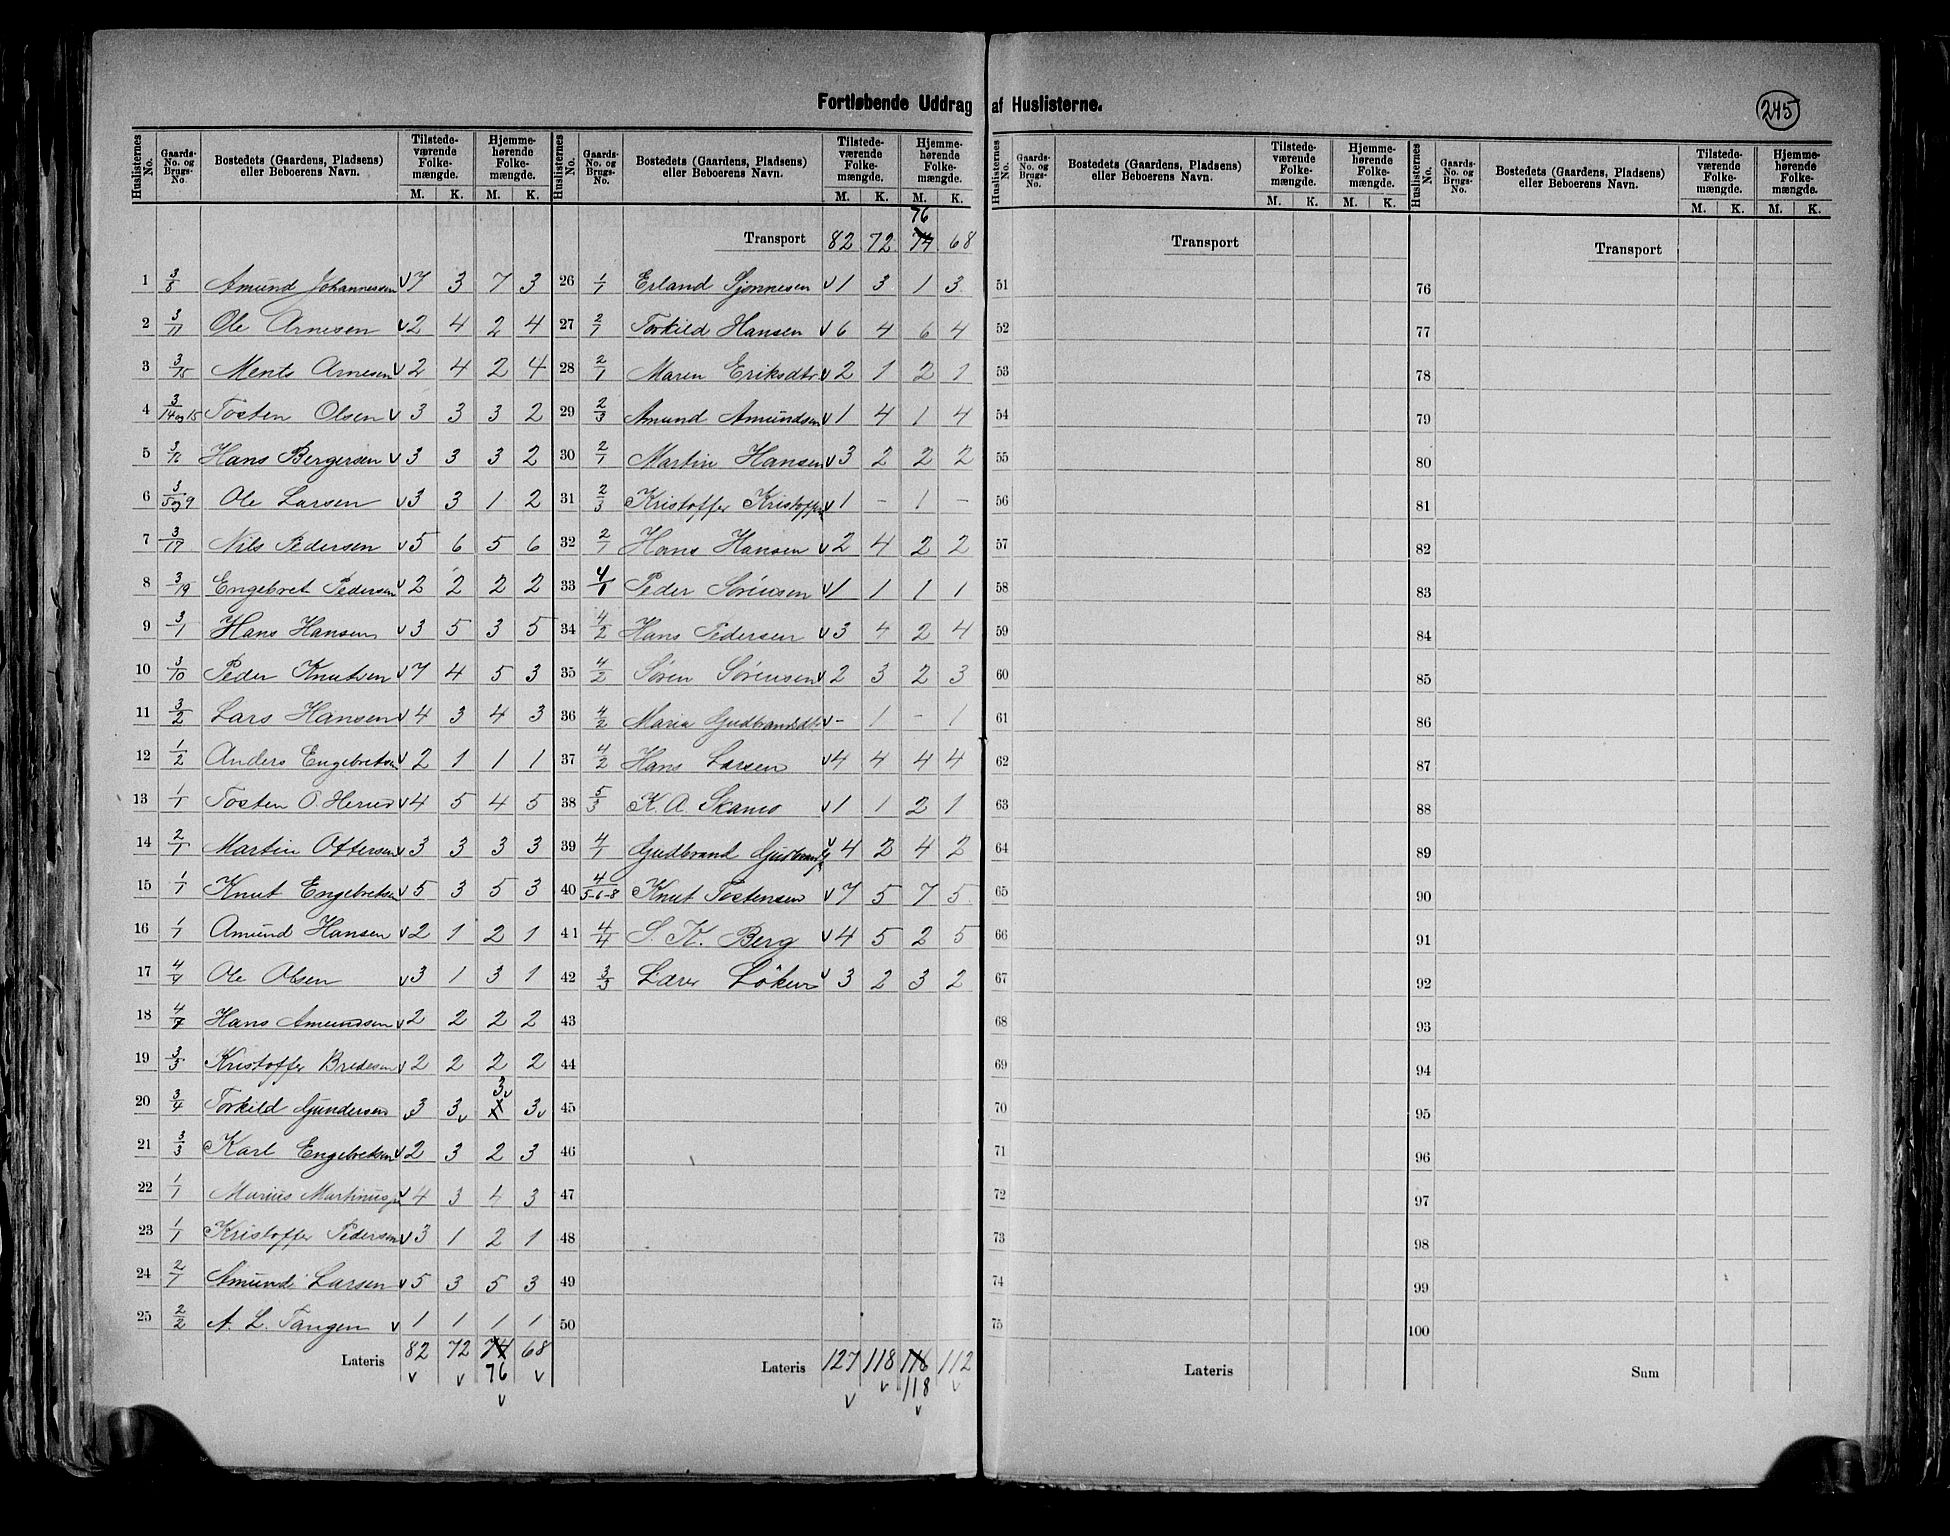 Fortløbende Uddrag af Huslisterne.
245
Huslisternes No. Gaards-No. og Brugs-No. Bostedets (Gaardens, Pladsens) eller Beboerens Navn. Tilstedeværende Folkemængde. M. K. Hjemmehørende Folkemængde. M. K.
1 3/8 Amund Johannessen v 7 3 7 3
2 3/17 Ole Arnesen v 2 4 2 4
3 3/15 Ments Arnesen v 2 4 2 4
4 3/14 og 15 Tosten Olsen v 3 3 3 2
5 3/16 Hans Bergersen v 3 3 3 2
6 3/5 og 9 Ole Larsen v 3 3 1 2
7 3/17 Nils Pedersen v 5 6 5 6
8 3/19 Engebret Pedersen v 2 2 2 2
9 3/1 Hans Hansen v 3 5 3 5
10 3/10 Peder Knutsen v 7 4 5 3
11 3/2 Lars Hansen v 4 3 4 3
12 1/2 Anders Engebretsen v 2 1 1 1
13 1/1 Tosten O. Herud v 4 5 4 5
14 2/1 Martin Ottersen v 3 3 3 3
15 1/1 Knut Engebretsen v 5 3 5 3
16 1/1 Amund Hansen v 2 1 2 1
17 4/7 Ole Olsen v 3 1 3 1
18 4/7 Hans Amundsen v 2 2 2 2
19 3/5 Kristoffer Bredesen v 2 2 2 2
20 3/4 Torkild Gundersen v 3 3 v 3 v 3 v
21 3/3 Karl Engebretsen v 2 3 2 3
22 1/1 Marius Martinus v 4 3 4 3
23 1/1 Kristoffer Pedersen v 3 1 2 1
24 2/1 Amund Larsen v 5 3 5 3
25 2/2 A. L. Tangen v 1 1 1 1
Lateris 82 72 74 68
v v 76 v
v
Huslisternes No. Gaards-No. og Brugs-No. Bostedets (Gaardens, Pladsens) eller Beboerens Navn. Tilstedeværende Folkemængde. M. K. Hjemmehørende Folkemængde. M. K.
76
Transport 82 72 74 68
26 1/1 Erland Sjønnesen v 1 3 1 3
27 2/1 Torkild Hansen v 6 4 6 4
28 2/1 Maren Eriksdtr v 2 1 2 1
29 2/3 Amund Amundsen v 1 4 1 4
30 2/1 Martin Hansen v 3 2 2 2
31 2/3 Kristoffer v 1 - 1 -
32 2/1 Hans Hansen v 2 4 2 2
33 4/1 Peder Sørensen v 1 1 1 1
34 4/2 Hans Pedersen v 3 4 2 4
35 4/2 Søren Sørensen v 2 3 2 3
36 4/2 Maria Gudbrandsdtr v - 1 - 1
37 4/2 Hans Larsen v 4 4 4 4
38 5/3 K. A. v 1 1 2 1
39 4/1 Gudbrand v 4 2 4 2
40 4/5-6-8 Knut Tostensen v 7 5 7 5
41 4/4 S. K. Berg v 4 5 2 5
42 3/3 Lærer Løken v 3 2 3 2
43
44
45
46
47
48
49
50
Lateris 127 118 116 112
v v 118 v
v
Huslisternes No. Gaards-No. og Brugs-No. Bostedets (Gaardens, Pladsens) eller Beboerens Navn. Tilstedeværende Folkemængde. M. K. Hjemmehørende Folkemængde. M. K.
Transport
51
52
53
54
55
56
57
58
59
60
61
62
63
64
65
66
67
68
69
70
71
72
73
74
75
Lateris
Huslisternes No. Gaards-No. og Brugs-No. Bostedets (Gaardens, Pladsens) eller Beboerens Navn. Tilstedeværende Folkemængde. M. K. Hjemmehørende Folkemængde. M. K.
Transport
76
77
78
79
80
81
82
83
84
85
86
87
88
89
90
91
92
93
94
95
96
97
98
99
100
Sum